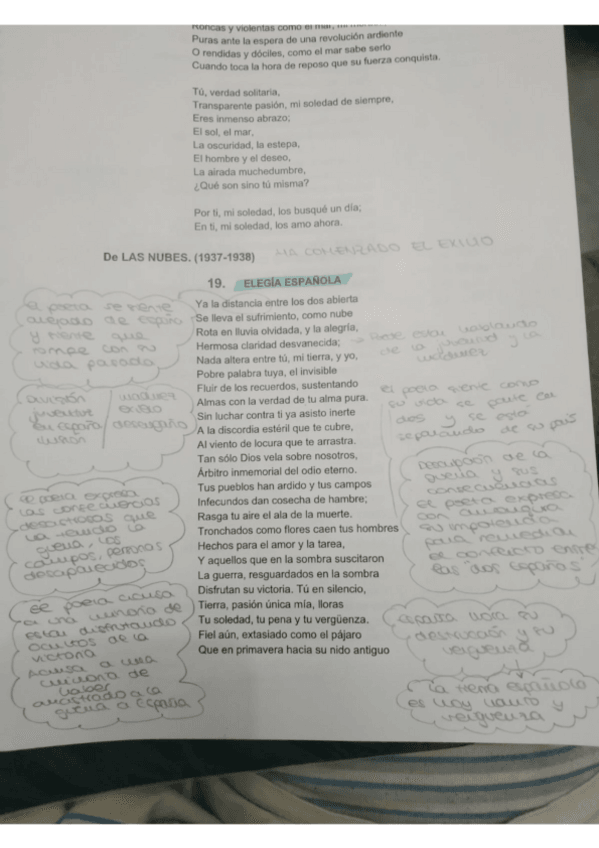 Roncas y violentas como el mar, mi
Puras ante la espera de una revolución ardiente
O rendidas y dóciles, como el mar sabe serlo
Cuando toca la hora de reposo que su fuerza conquista.
Tú, verdad solitaria,
Transparente pasión, mi soledad de siempre,
Eres inmenso abrazo;
El sol, el mar,
La oscuridad, la estepa,
El hombre y el deseo,
La airada muchedumbre,
¿Qué son sino tú misma?
Por ti, mi soledad, los busqué un día;
En ti, mi soledad, los amo ahora.
De LAS NUBES. (1937-1938)
HA COMENZADO EL EXILIO
19. ELEGÍA ESPAÑOLA
Ya la distancia entre los dos abierta
Se lleva el sufrimiento, como nube
Rota en lluvia olvidada, y la alegría,
Hermosa claridad desvanecida;
Nada altera entre tú, mi tierra, y yo,
Pobre palabra tuya, el invisible
Fluir de los recuerdos, sustentando
Almas con la verdad de tu alma pura.
Sin luchar contra ti ya asisto inerte
A la discordia estéril que te cubre,
Al viento de locura que te arrastra.
Tan sólo Dios vela sobre nosotros,
Árbitro inmemorial del odio eterno.
Tus pueblos han ardido y tus campos
Infecundos dan cosecha de hambre;
Rasga tu aire el ala de la muerte.
Tronchados como flores caen tus hombres
Hechos para el amor y la tarea,
Y aquellos que en la sombra suscitaron
La guerra, resguardados en la sombra
Disfrutan su victoria. Tú en silencio,
Tierra, pasión única mía, lloras
Tu soledad, tu pena y tu vergüenza.
Fiel aún, extasiado como el pájaro
Que en primavera hacia su nido antiguo
El poeta se siente
alejado de España
y siente que
rompe con su
vida pasada
juventud
en España
ilusión
madurez
exilio
desengaño
El poeta expresa
las consecuencias
desastrosas que
ha tenido la
guerra, los
campos, personas
desaparecidos
El poeta acusa
a una minoría de
estar disfrutando
ocultos de la
victoria
Acusa a una
minoría de
haber
arrastrado a la
guerra a España
Puede estar hablando
de la juventud y la
madurez
El poeta siente como
su vida se parte en
dos y se está
separando de su país
Descripción de la
guerra y sus
consecuencias
El poeta expresa
con amargura
su impotencia
para remediar
el conflicto entre
las "dos Españas"
España llora su
destrucción y su
vergüenza
La tierra española
es hoy llanto y
vergüenza